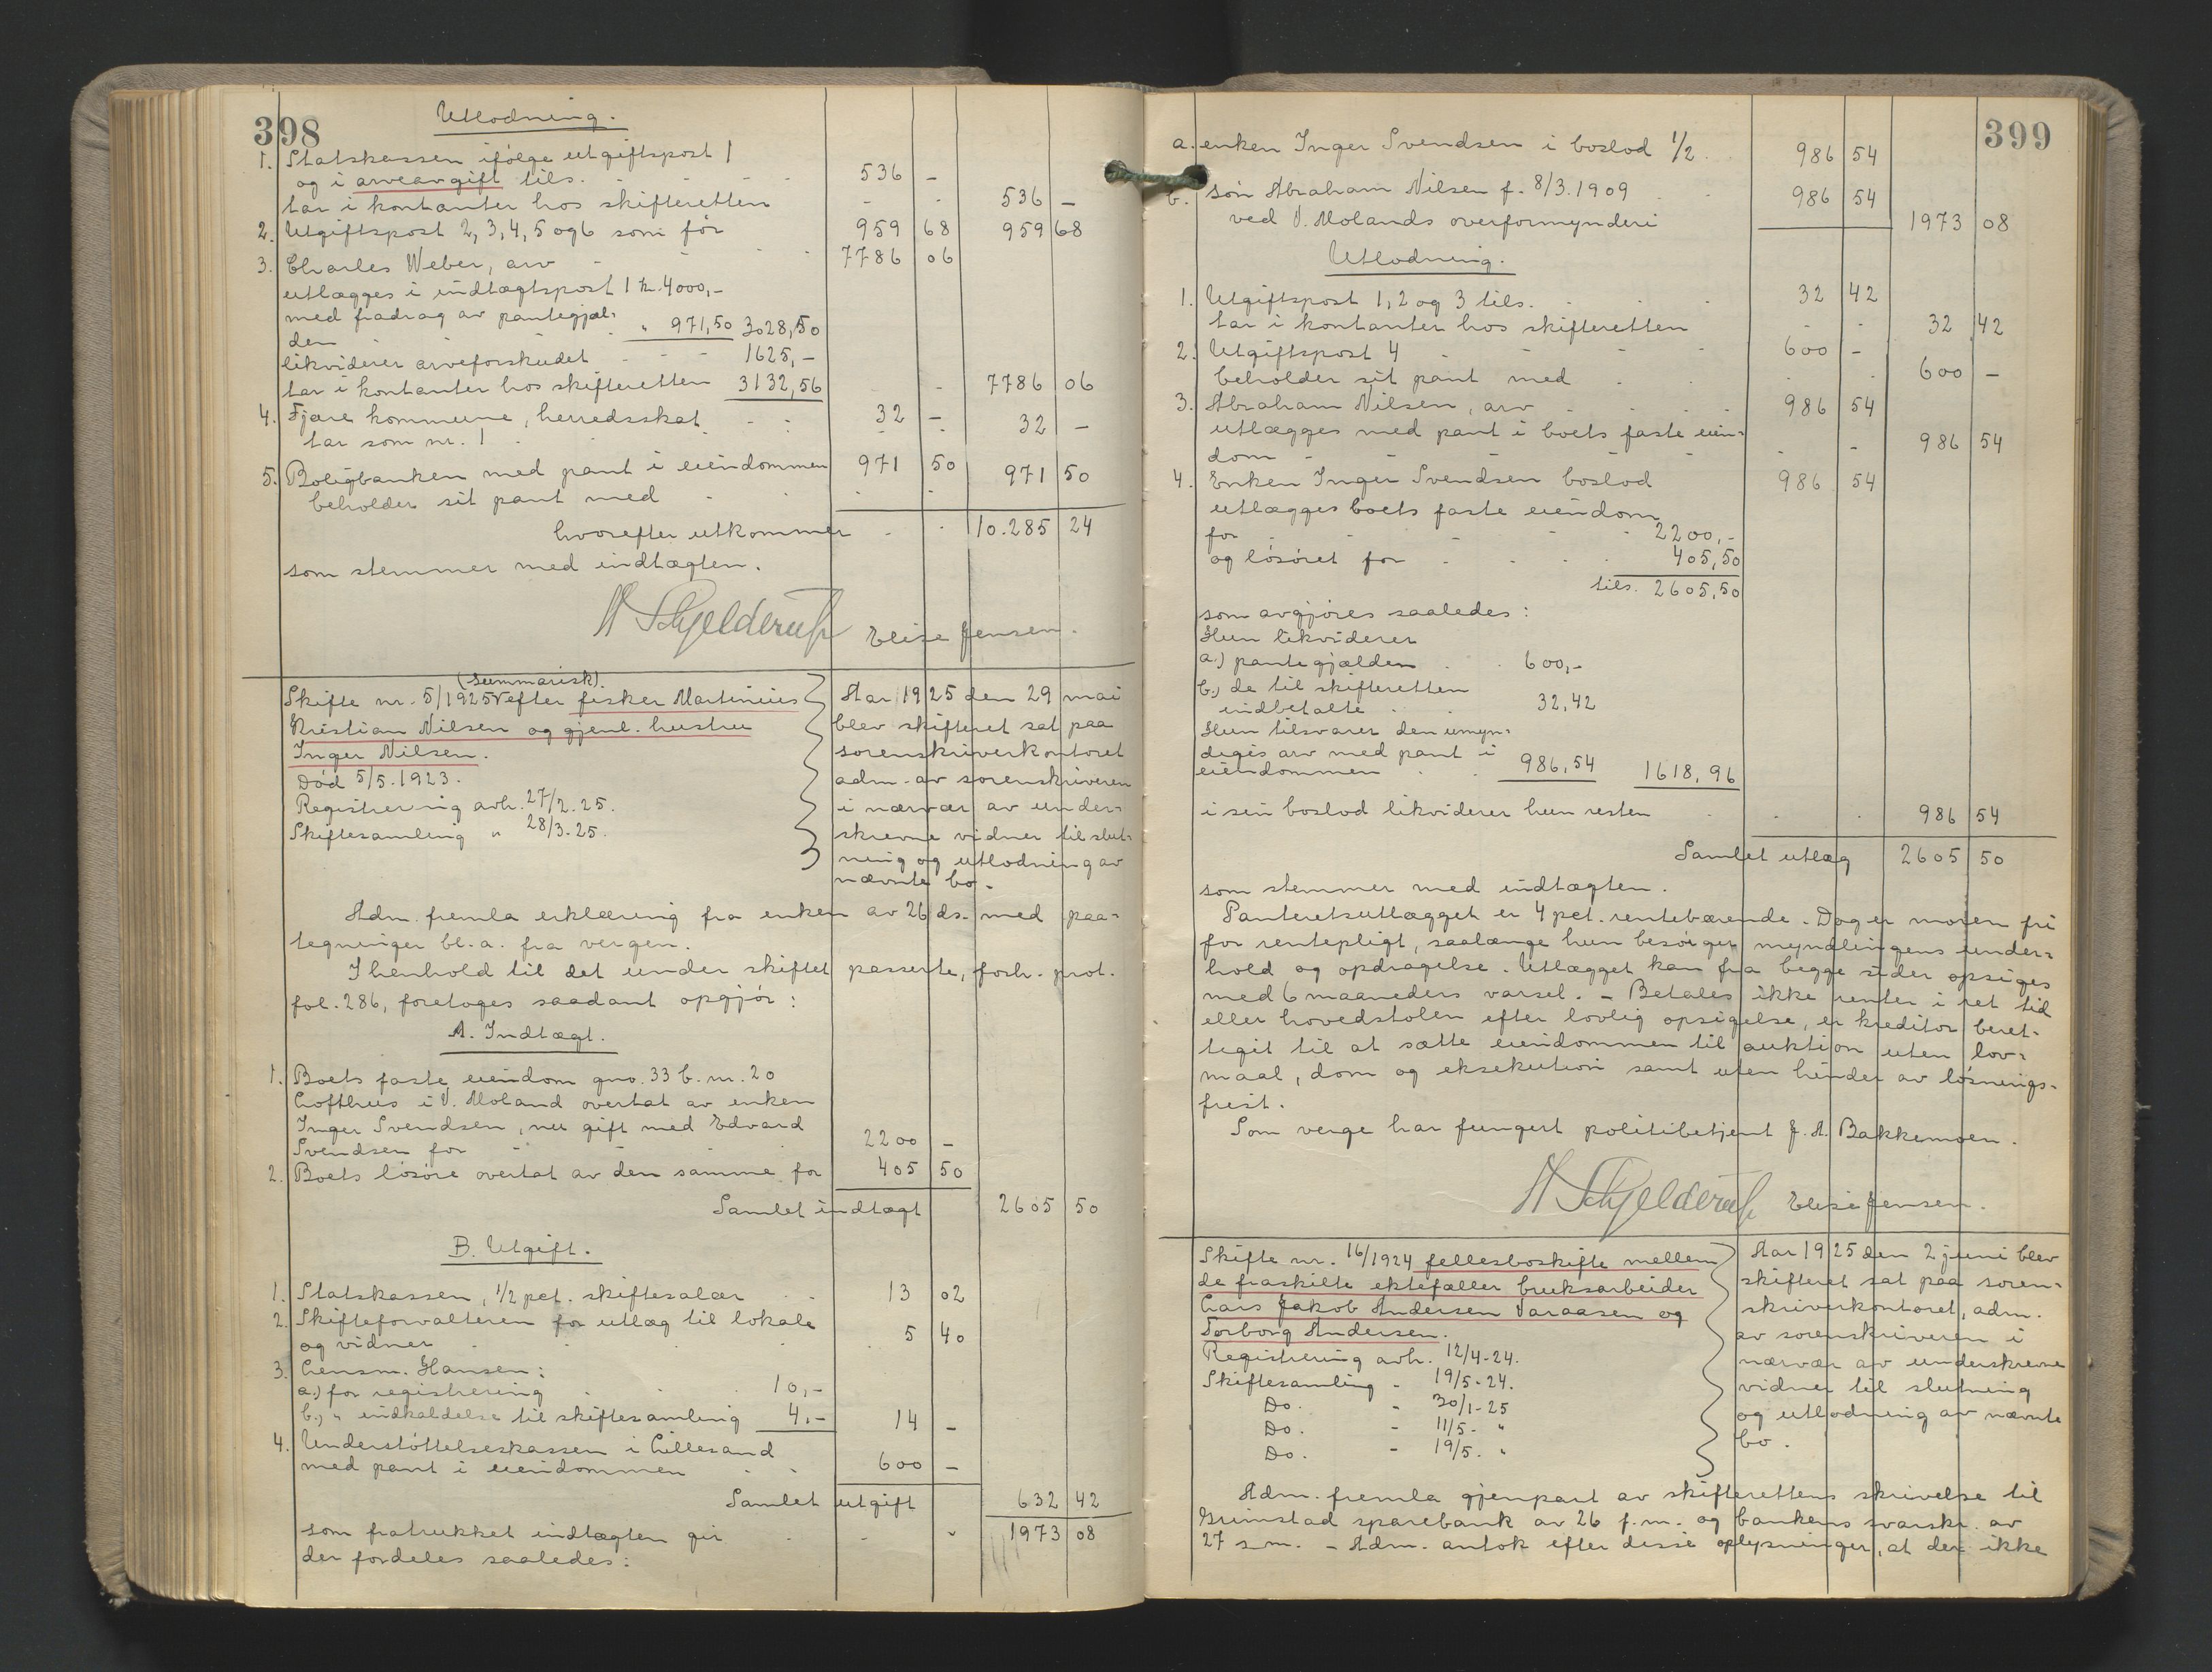 398
Utlodning.
1. Statskassen ifølge utgiftspost 1
og i arveavgift tils. - - - 536 -
tar i kontanter hos skifteretten - - 536 -
2. Utgiftspost 2, 3, 4, 5 og 6 som før 959 68 959 68
3. Charles Weber, arv - - 7786 06
utlægges i indtægtspost 1 kr. 4000,-
med fradrag av pantegjæl-
den - - " 971,50 3028,50
likviderer arveforskudet - - - 1625,-
tar i kontanter hos skifteretten 3132,56 - - 7786 06
4. Fjære kommune, herredsskat - - 32 -
tar som nr. 1 - - 32 -
5. Boligbanken med pant i eiendommen 971 50
beholder sit pant med - - 971 50
hvorefter utkommer - - 10.285 24
som stemmer med indtægten.
A Schjelderup Elise Jensen.
(summarisk)
Skifte nr. 5/1925 V efter fisker Martinius
Kristian Nilsen og gjenl. hustru
Inger Nilsen.
Død 5/5.1923.
Registrering avh. 27/2.25.
Skiftesamling " 28/3.25.
Aar 1925 den 29 mai
blev skifteret sat paa
sorenskriverkontoret
adm. av sorenskriveren
i nærvær av under-
skrevne vidner til slut-
ning og utlodning av
nævnte bo.
Adm. fremla erklæring fra enken av 26 ds. med paa-
tegninger bl.a. fra vergen.
I henhold til det under skiftet passerte, forh. prot.
fol. 286, foretoges saadant opgjør:
A. Indtægt.
1. Boets faste eiendom gno. 33 b. nr. 20
Lofthus i V. Moland overtat av enken
Inger Svendsen, nu gift med Edvard
Svendsen for - - 2200 -
2. Boets løsøre overtat av den samme for 405 50
Samlet indtægt 2605 50
B. Utgift.
1. Statskassen, 1/2 pct. skiftesalær - - 13 02
2. Skifteforvalteren for utlæg til lokale
og vidner - - 5 40
3. Lensm. Hansen:
a.) for registrering - - 10,-
b.) " indkaldelse til skiftesamling 4,- 14 -
4. Understøttelseskassen i Lillesand
med pant i eiendommen - - 600 -
Samlet utgift 632 42
som fratrukket indtægten gir - - - 1973 08
der fordeles saaledes:
399
a. enken Inger Svendsen i boslod 1/2 986 54
b. søn Abraham Nilsen f. 8/3.1909 - 986 54
ved V. Molands overformynderi 1973 08
Utlodning.
1. Utgiftspost 1, 2 og 3 tils. - - - 32 42
tar i kontanter hos skifteretten - - 32 42
2. Utgiftspost 4 - - - 600 -
beholder sit pant med - - - - 600 -
3. Abraham Nilsen, arv - - - - 986 54
utlægges med pant i boets faste eien-
dom - - - - - 986 54
4. Enken Inger Svendsen boslod 986 54
utlægges boets faste eiendom
for - - - - 2200,-
og løsøret for - - - 405,50
tils. 2605,50
som avgjøres saaledes:
Hun likviderer
a.) pantegjælden - - 600,-
b.) de til skifteretten
indbetalte - - 32,42
Hun tilsvarer den umyn-
diges arv med pant i
eiendommen - - 986,54 1618,96
i sin boslod likviderer hun resten - - - 986 54
Samlet utlæg 2605 50
som stemmer med indtægten.
Panteretsutlægget er 4 pct. rentebærende. Dog er moren fri
for rentepligt, saalænge hun besørger myndlingens under-
hold og opdragelse. Utlægget kan fra begge sider opsiges
med 6 maaneders varsel. - Betales ikke renter i ret tid
eller hovedstolen efter lovlig opsigelse, er kreditor beret-
tigit til at sætte eiendommen til auktion uten lov-
maal, dom og eksekution samt uten hinder av løsnings-
frist.
Som verge har fungert politibetjent J. A. Bakkemoen.
A Schjelderup Elise Jensen.
Skifte nr. 16/1924 fellesboskifte mellem
de fraskilte ektefæller bruksarbeider
Lars Jakob Andersen Varaasen og
Torborg Andersen.
Registrering avh. 12/4-24.
Skiftesamling - 19/5-24.
Do. - 30/1-25
Do. - 11/5- "
Do. - 19/5- "
Aar 1925 den 2 juni blev
skifteret sat paa soren-
skriverkontoret, adm.
av sorenskriveren i
nærvær av underskrevne
vidner til slutning
og utlodning av nævnte
bo.
Adm. fremla gjenpart av skifterettens skrivelse til
Grimstad sparebank av 26 f.m. og bankens svarskr. av
27 s.m. - Adm. antok efter disse oplysninger, at der ikke